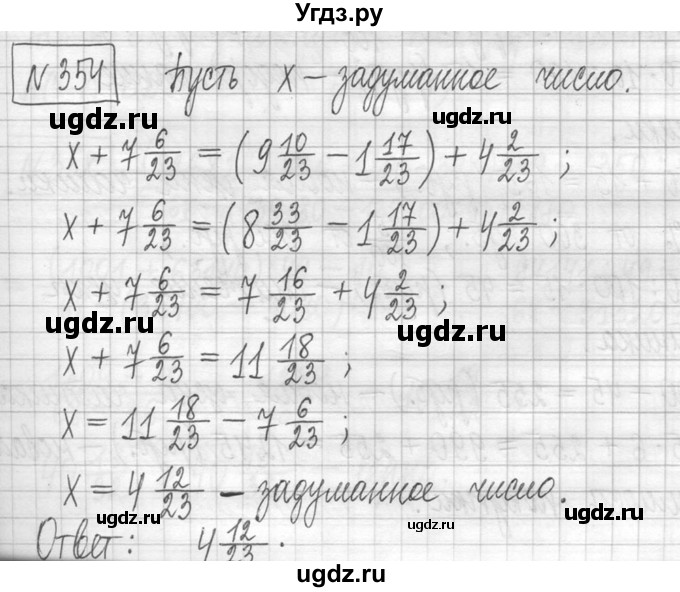 Угдз.ру
N 354 Пусть x – задуманное число.
ugdz.ru ugdz.ru
x + 7 6/23 = (9 10/23 – 1 17/23) + 4 2/23 ;
x + 7 6/23 = (8 33/23 – 1 17/23) + 4 2/23 ;
ugdz.ru ugdz.ru
x + 7 6/23 = 7 16/23 + 4 2/23 ;
ugdz.ru ugdz.ru
x + 7 6/23 = 11 18/23 ;
x = 11 18/23 – 7 6/23 ;
x = 4 12/23 – задуманное число.
ugdz.ru ugdz.ru ugdz.ru
Ответ: 4 12/23 .
ugdz.ru